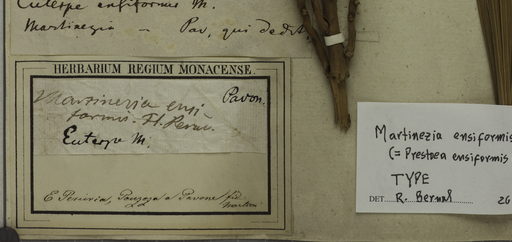 Euterpe ensiformis M.
Martinezia — Pav, qui dedit
HERBARIUM REGIUM MONACENSE.
Martinezia ensi Pavon.
formis. Fl. Peruv.
Euterpe M.
E Peruvia, Pozuzo a Pavone
Martinezia ensiformis
(= Prestoea ensiformis
TYPE
DET. R. Bernal 26